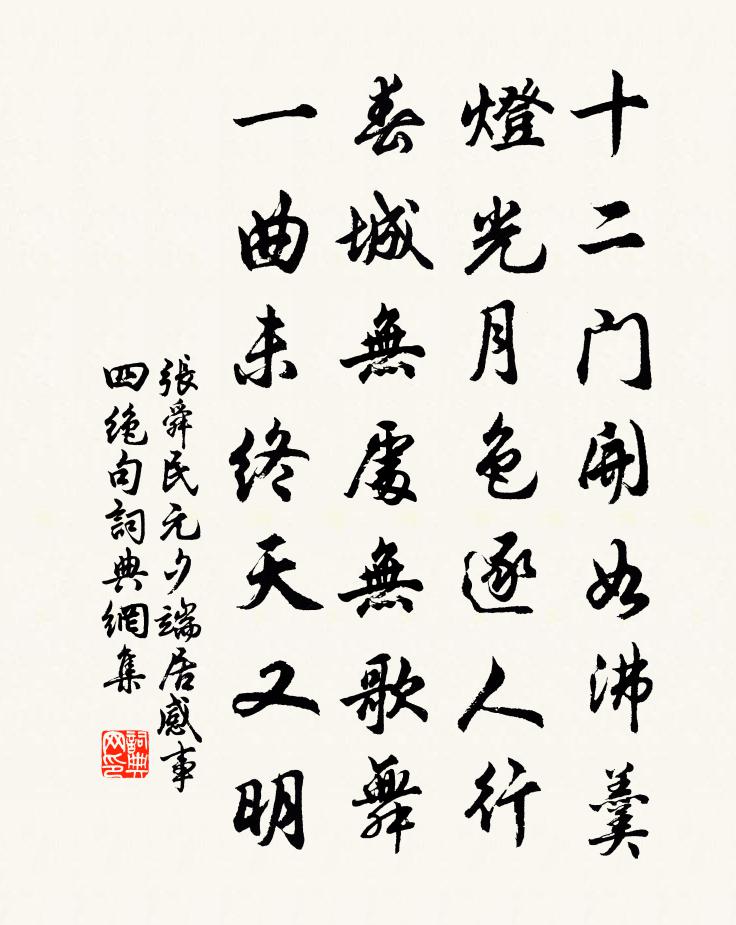 十二门開如沸羹
燈光月色逐人行
春城無處無歌舞
一曲未終天又明
張舜民元夕端居感事
四絶句詞典網集
詞典网印